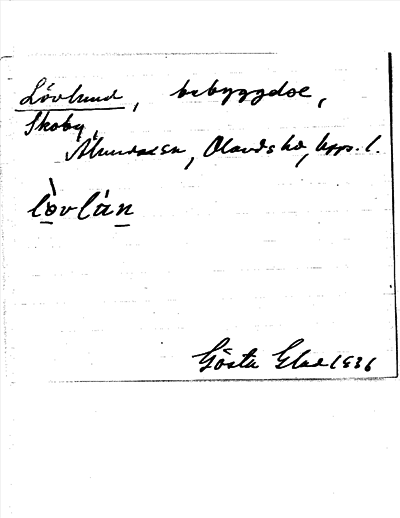 Lövlund, bebyggelse,
Skoby,
Alunda sn, Olands hd, Upps. l.
lòvlàn
Gösta Elde 1936